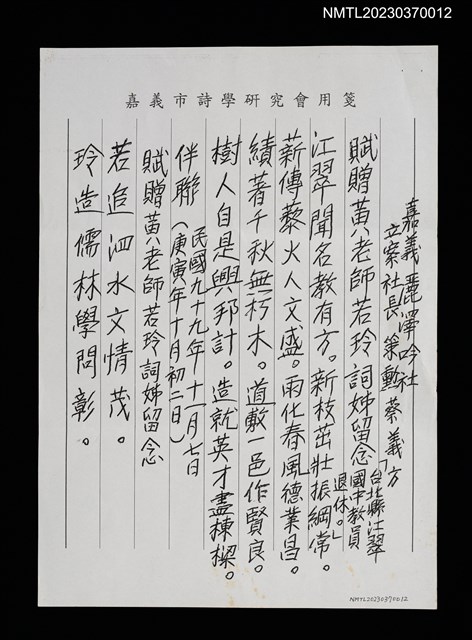 NMTL20230370012
嘉義市詩學研究會用箋
嘉義麗澤吟社
立案社長 策勳 蔡義方
賦贈黃八老師若玲詞姊留念「台北縣江翠
國中教員
退休。」
江翠聞名教有方。新枝茁壯振綱常。
薪傳藜火人文盛。雨化春風德業昌。
績著千秋無朽木。道敷一邑作賢良。
樹人自是興邦計。造就英才盡棟樑。
民國九十九年十一月七日
伴聯(庚寅年十月初二日)
賦贈黃八老師若玲詞姊留念
若追泗水文情茂。
玲造儒林學問彰。
NMTL20230370012